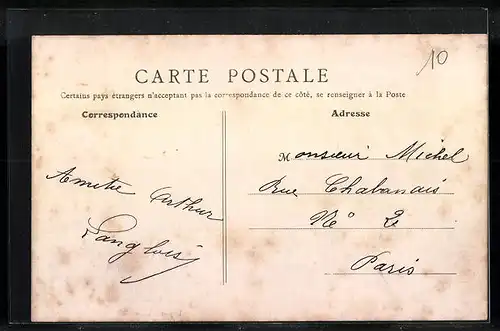 10
CARTE POSTALE
Certains pays étrangers n'acceptant pas la correspondance de ce côté, se renseigner à la Poste
Correspondance
Amitié Arthur
Langlois
Adresse
Monsieur Michel
Rue Chabanais
No 2
Paris